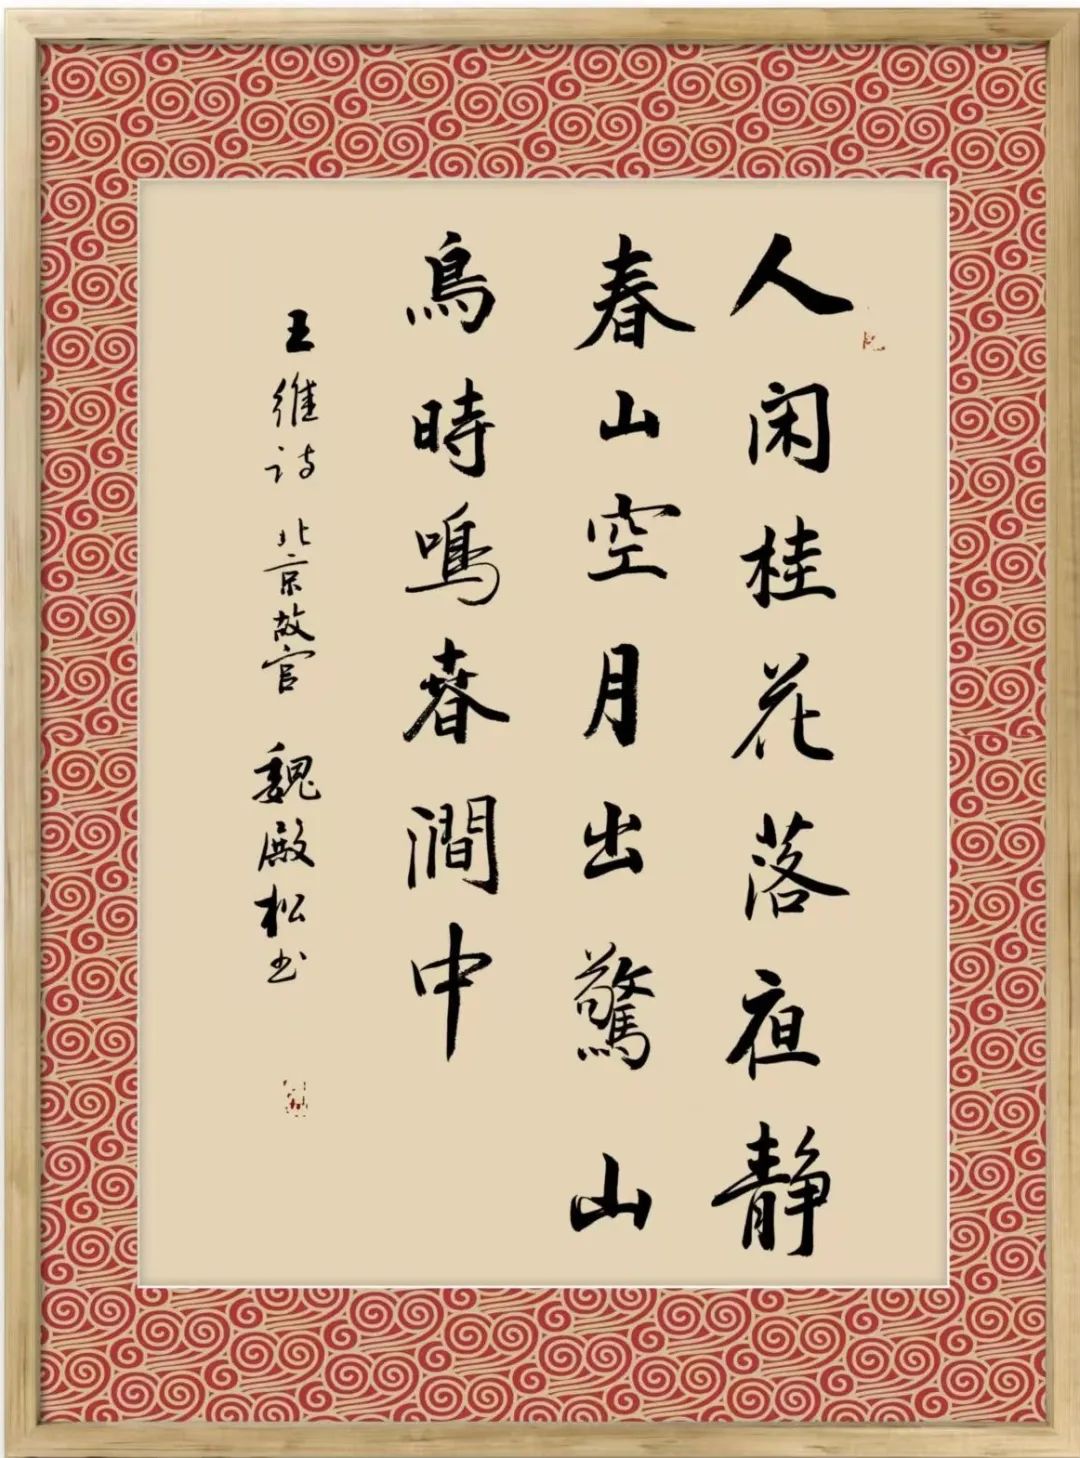 人闲桂花落夜静
春山空月出驚山
鳥時鳴春澗中
王維诗 北京故宫 魏殿松书